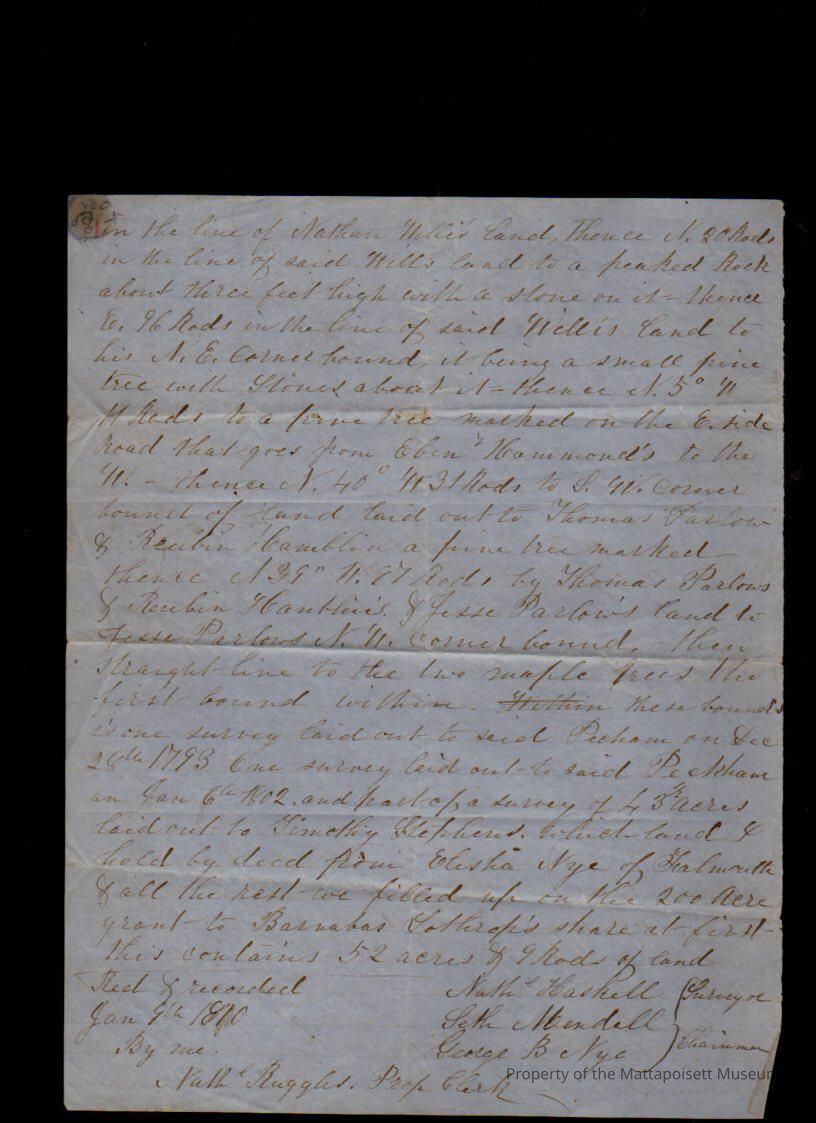 in the line of Nathan Willis land, Thence N. 20 Rods
in the line of said Willis land to a peaked Rock
about three feet high with a stone on it - thence
E. 96 Rods in the line of said Willis land to
his N. E. Corner bound, it being a small pine
tree with Stones about it - thence N. 5° W
11 Rods to a pine tree marked on the E. side
Road that goes from Ebenr Hammond's to the
W. - thence N. 40° W 31 Rods to S. W. corner
bound of land laid out to Thomas Parlow
& Reubin Hamblin a pine tree marked -
thence N 39° W. 97 Rods by Thomas Parlows
& Reubin Hamblin's & Jesse Parlow's land to
Jesse Parlows N. W. corner bound, - then
straight line to the two maple trees the
first bound within. Within these bounds
is one survey laid out to said Pecham on Dec
26th 1793 One survey laid out to said Peckham
on Jan 6th 1802. and part of a survey of 43 acres
laid out to Timothy Stephens. Which land I
hold by deed from Elisha Nye of Falmouth
& all the rest we filled up on the 200 Acre
grant to Barnabas Lothrop's share at first -
this contains 52 acres & 9 Rods of land
Red & recorded
Jan 9th 1810
By me.
Nathl Ruggles. Prop Clerk
Nathl Haskell Surveyor
Seth Mendell
George B Nye Chainmen
Property of the Mattapoisett Museum